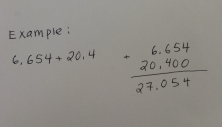 Example:
6,654 + 20,4
+ 6,654
20,400
27,054